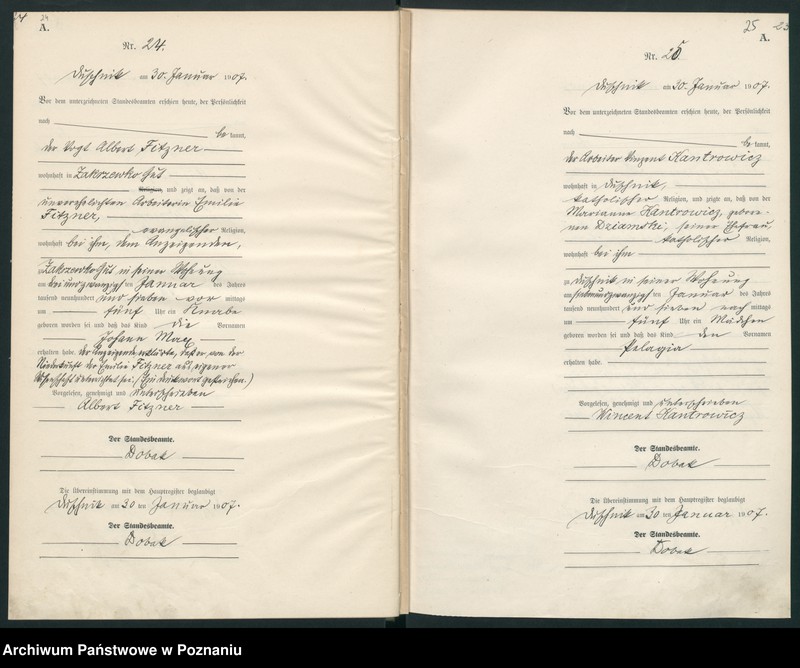 24
24
A.
Nr. 24.
Duschnik am 30. Januar 1907.
Vor dem unterzeichneten Standesbeamten erschien heute, der Persönlichkeit
nach
be kannt,
der Vogt Albert Fitzner
wohnhaft in Zakrzewko Gut
Religion, und zeigt an, daß von der
unverehelichten Arbeiterin Emilie
Fitzner,
evangelischer Religion,
wohnhaft bei ihm, dem Anzeigenden,
zu Zakrzewko Gut in seiner Wohnung
am drei und zwanzigsten Januar des Jahres
tausend neunhundert und sieben vor mittags
um fünf Uhr ein Knabe
geboren worden sei und daß das Kind die Vornamen
Johann Max
erhalten habe. der Anzeigende erklärte, daß er von der
Niederkunft der Emilie Fitzner aus eigener
Wissenschaft unterrichtet sei. (Ein Druckwort gestrichen.)
Vorgelesen, genehmigt und unterschrieben
Albert Fitzner
Der Standesbeamte.
Dobak
Die Übereinstimmung mit dem Hauptregister beglaubigt
Duschnik am 30 ten Januar 1907.
Der Standesbeamte.
Dobak
25
23
A.
Nr. 25.
Duschnik am 30. Januar 1907.
Vor dem unterzeichneten Standesbeamten erschien heute, der Persönlichkeit
nach
be kannt,
der Arbeiter Vinzent Kantrowicz
wohnhaft in Duschnik,
katholischer Religion, und zeigte an, daß von der
Marianna Kantrowicz, gebore-
nen Dziamski, seiner Ehefrau,
katholischer Religion,
wohnhaft bei ihm
zu Duschnik in seiner Wohnung
am siebenundzwanzigsten Januar des Jahres
tausend neunhundert und sieben nach mittags
um fünf Uhr ein Mädchen
geboren worden sei und daß das Kind den Vornamen
Pelagia
erhalten habe.
Vorgelesen, genehmigt und unterschrieben
Wincent Kantrowicz
Der Standesbeamte.
Dobak
Die Übereinstimmung mit dem Hauptregister beglaubigt
Duschnik am 30 ten Januar 1907.
Der Standesbeamte.
Dobak
Archiwum Państwowe w Poznaniu